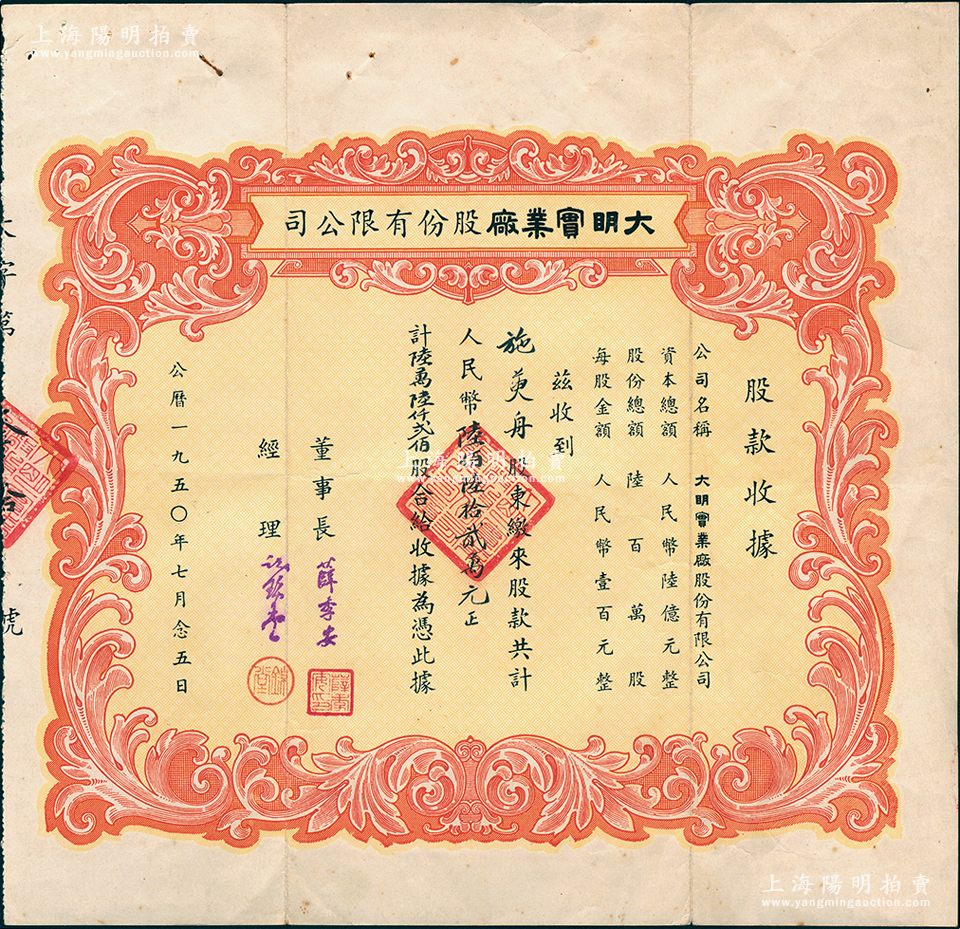 上海陽明拍賣
www.yangmingauction.com
大明實業廠股份有限公司
股款收據
公司名稱 大明實業廠股份有限公司
資本總額 人民幣陸億元整
股份總額 陸百萬股
每股金額 人民幣壹百元整
茲收到
施奐舟股東繳來股款共計
人民幣陸佰陸拾貳萬元正
計陸萬陸仟貳佰股合給收據為憑此據
董事長 薛季安
經理
公曆一九五〇年七月念五日
字第
號
上海陽明拍賣
www.yangmingauction.com
上海陽明拍賣
www.yangmingauction.com